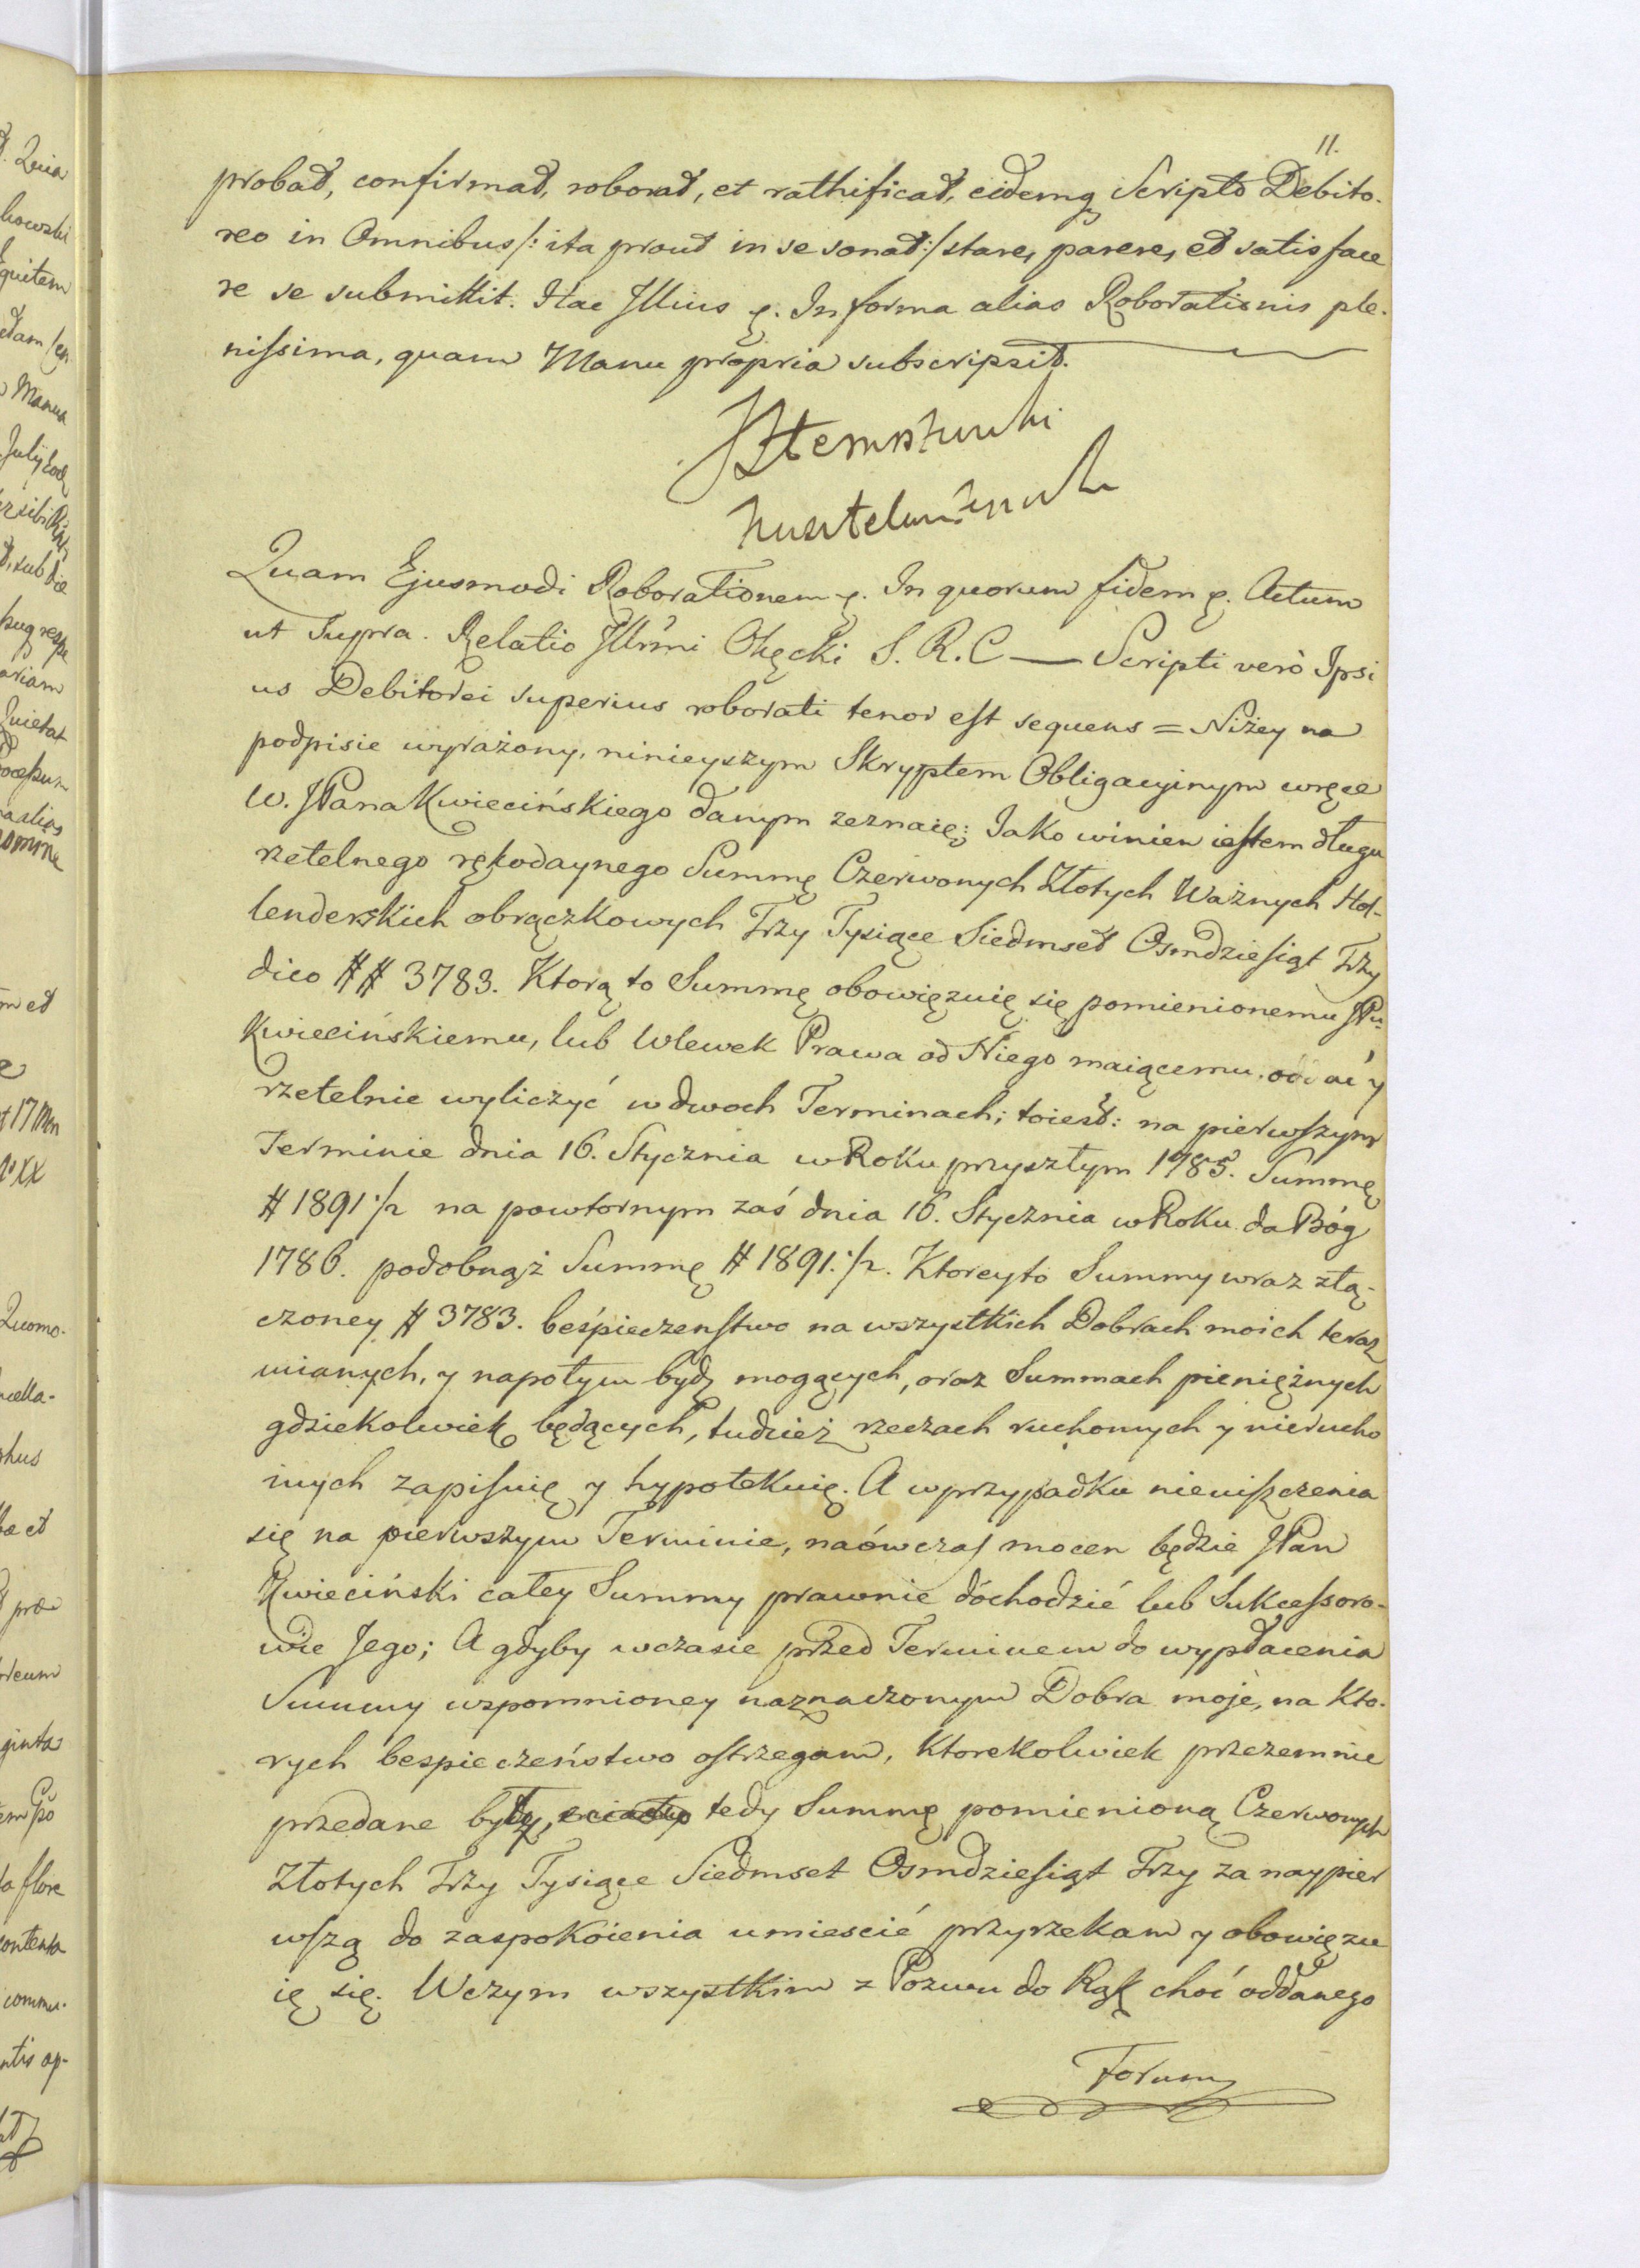 11.
probat, confirmat, roborat, et rathificat, eidemq Scripto Debito-
reo in Omnibus /: ita prout in se sonat :/ stare, parere, et satisface
re se submittit. Hac Illius p. In forma alias Roborationis ple-
nissima, quam Manu propria subscripsit.
Quam Ejusmodi Roborationem p. In quorum fidem p. Actum
ut Supra. Relatio Illrmi Okęcki S. R. C — Scripti verò Ipsi
us Debitorei superius roborati tenor est sequens = Niżey na
podpisie wyrażony, ninieyszym Skryptem Obligacyinym w ręce
W. JPana Kwiecińskiego danym zeznaię; Jako winien iestem długu
rzetelnego rękodaynego Summę Czerwonych Złotych Ważnych Hol-
lenderskich obrączkowych Trzy Tysiące Siedmset Osmdziesiąt Trzy
dico ## 3783. Ktorą to Summę obowięzuię się pomienionemu JPu
Kwiecińskiemu, lub Wlewek Prawa od Niego maiącemu. oddać y
rzetelnie wyliczyć w dwoch Terminach; toiest: na pierwszym
Terminie dnia 16. Stycznia w Roku przyszłym 1785. Summę
# 1891 1/2 na powtornym zaś dnia 16. Stycznia w Roku da Bóg
1786. podobnąż Summę # 1891. 1/2. Ktorey to Summy wraz złą-
czoney # 3783. beśpieczenstwo na wszystkich Dobrach moich teraz
mianych, y napotym bydź mogących, oraz Summach pieniężnych
gdziekolwiek będących, tudzież rzeczach ruchomych y nierucho
mych zapisuię y hypotekuię. A w przypadku nieuiszczenia
się na pierwszym Terminie, naówczas mocen będzie JPan
Kwieciński całey Summy prawnie dochodzić lub Sukcessoro-
wie Jego; A gdyby w czasie przed Terminem do wypłacenia
Summy wspomnioney naznaczonym Dobra moje, na Kto-
rych bespieczeństwo ostrzegam, Ktorekolwiek przezemnie
przedane były, tedy Summę pomienioną Czerwonych
Złotych Trzy Tysiące Siedmset Osmdziesiąt Trzy za naypier
wszą do zaspokoienia umiescić przyrzekam y obowięzu
ię się. W czym wszystkim z Pozwu do Rąk choć oddanego
Forum